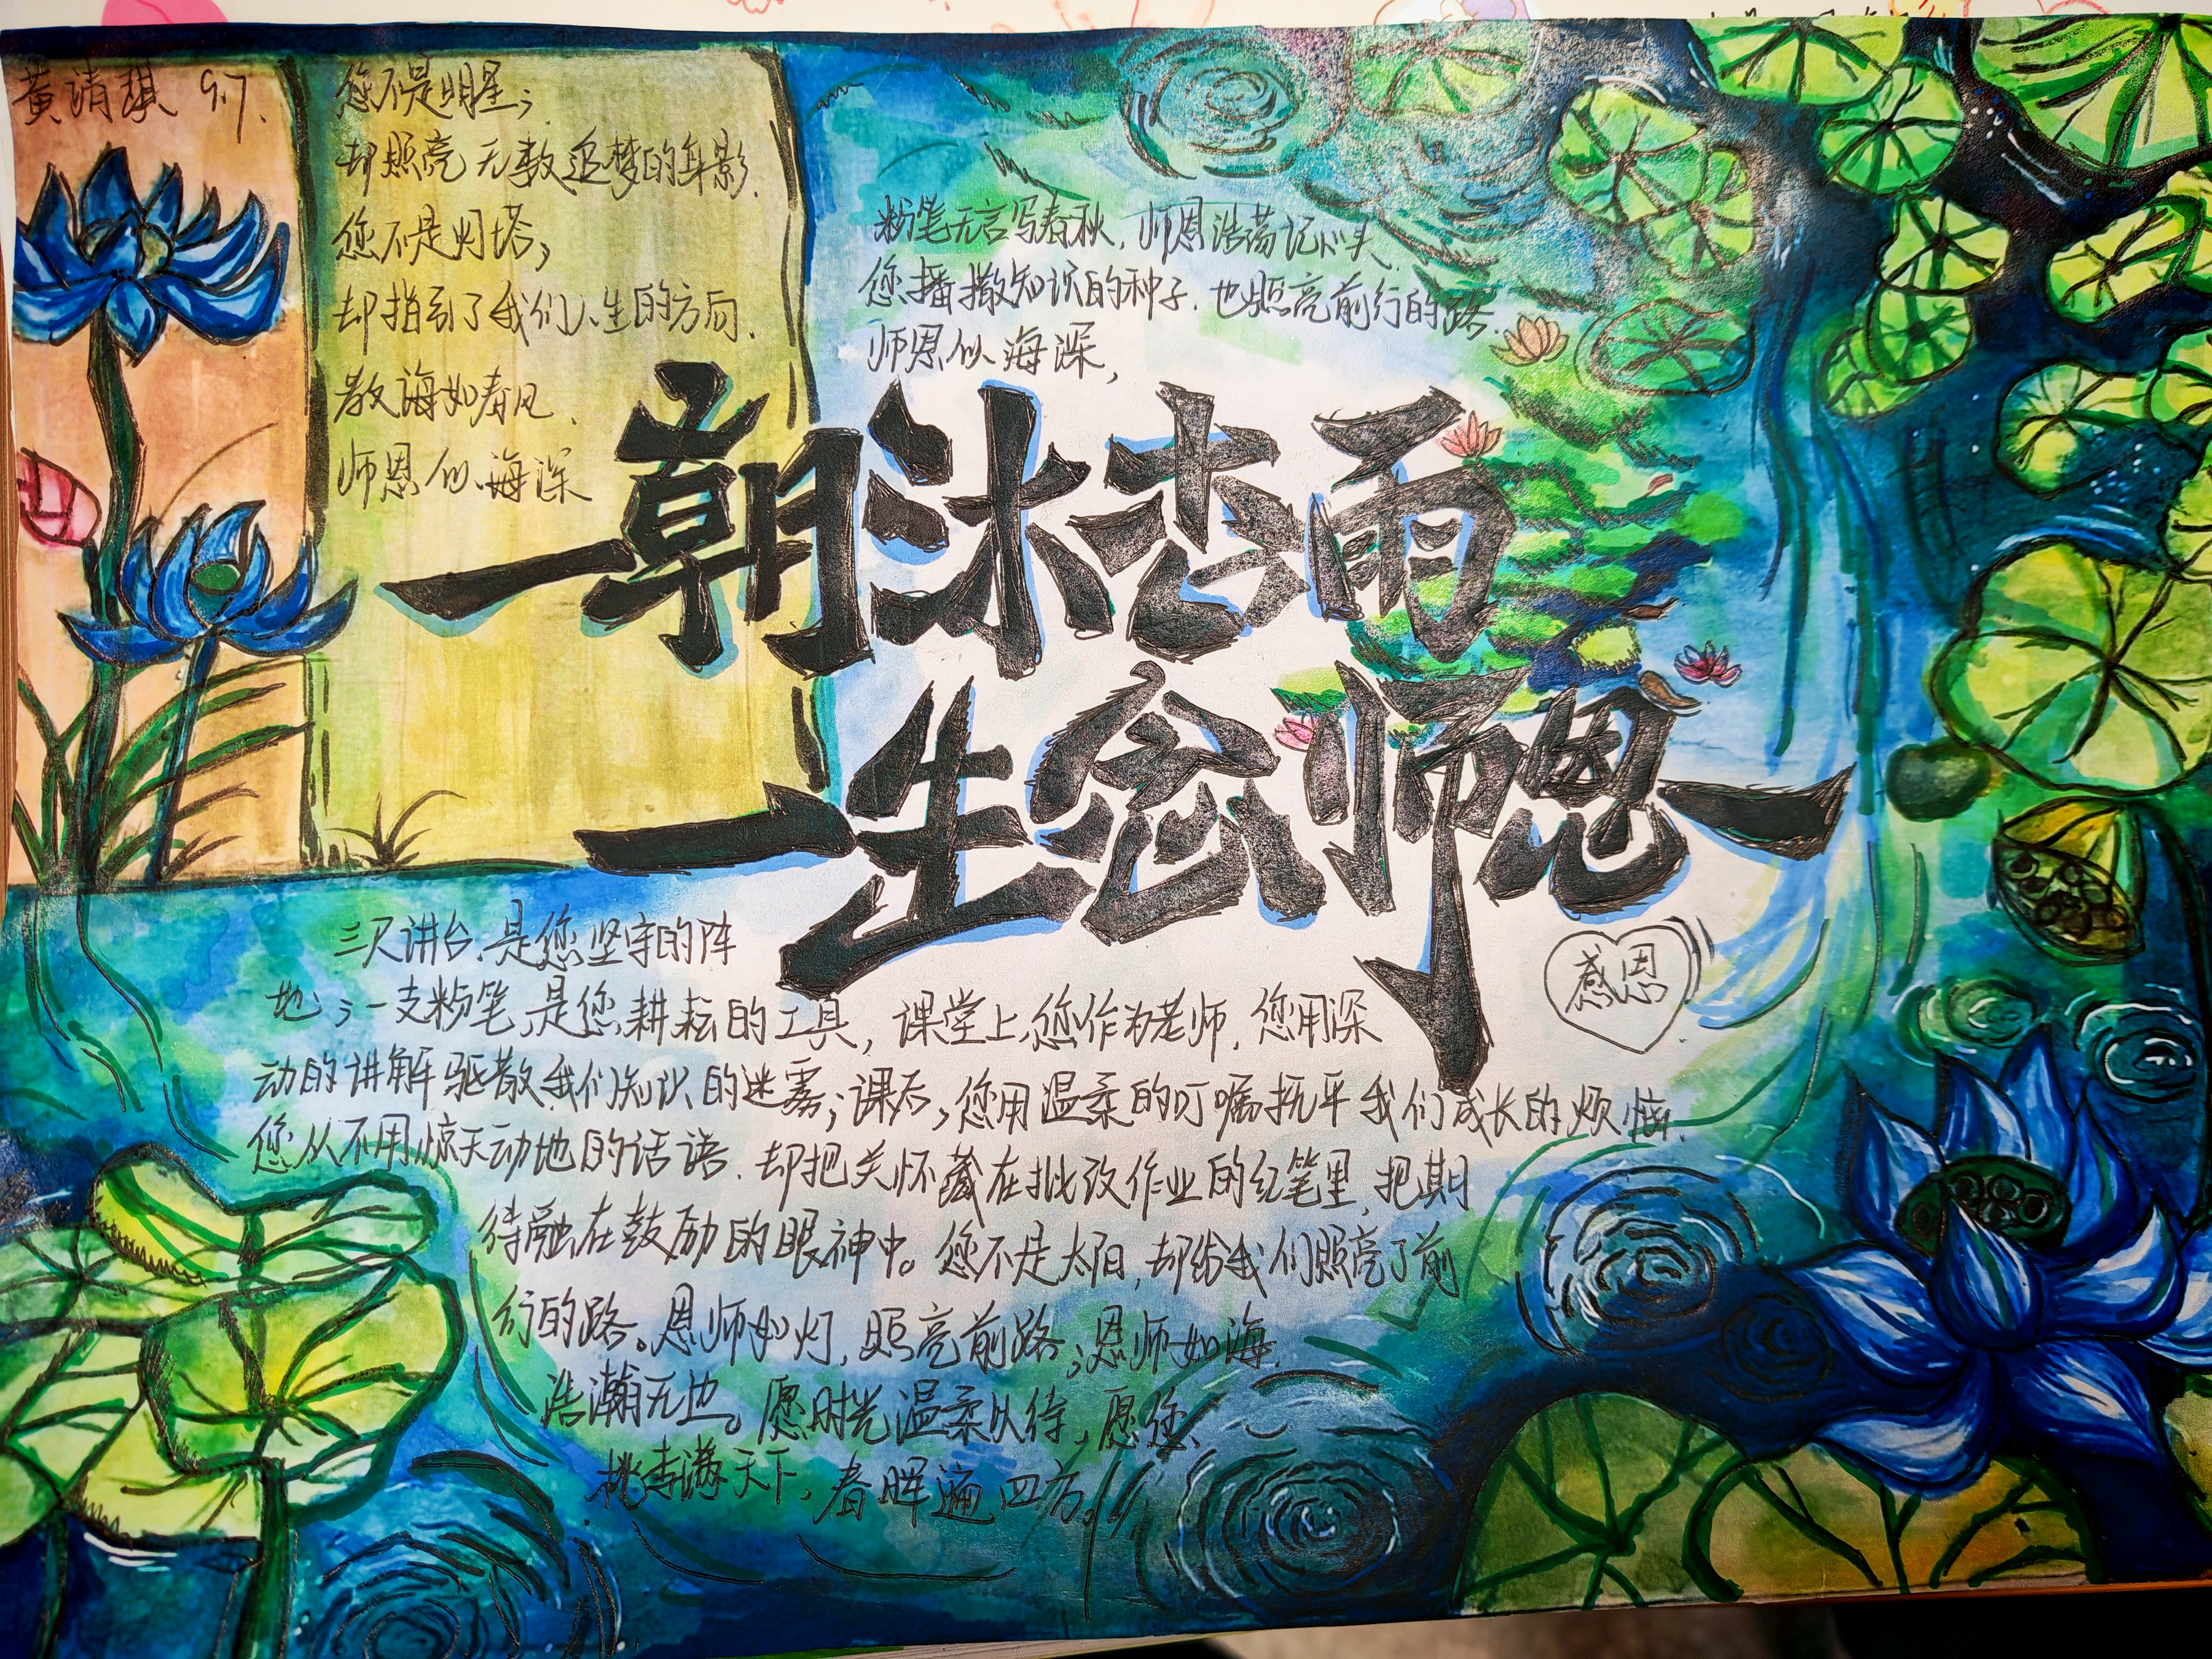 黄清琪 9.7.
您不是明星;
却照亮无数追梦的身影.
您不是灯塔;
却指引了我们人生的方向.
教诲如春风.
师恩似海深
粉笔无言写春秋.师恩浩荡记心头.
您播撒知识的种子.也照亮前行的路.
师恩似海深,
一朝沐杏雨
一生念师恩
感恩
三尺讲台.是您坚守的阵
地;一支粉笔,是您耕耘的工具,课堂上,您作为老师.您用深
动的讲解驱散我们知识的迷雾;课后,您用温柔的叮嘱抚平我们成长的烦恼.
您从不用惊天动地的话语.却把关怀藏在批改作业的红笔里.把期
待融在鼓励的眼神中。您不是太阳,却给我们照亮了前
行的路。恩师如灯,照亮前路;恩师如海.
浩瀚无边。愿时光温柔以待,愿您
桃李满天下,春晖遍四方。